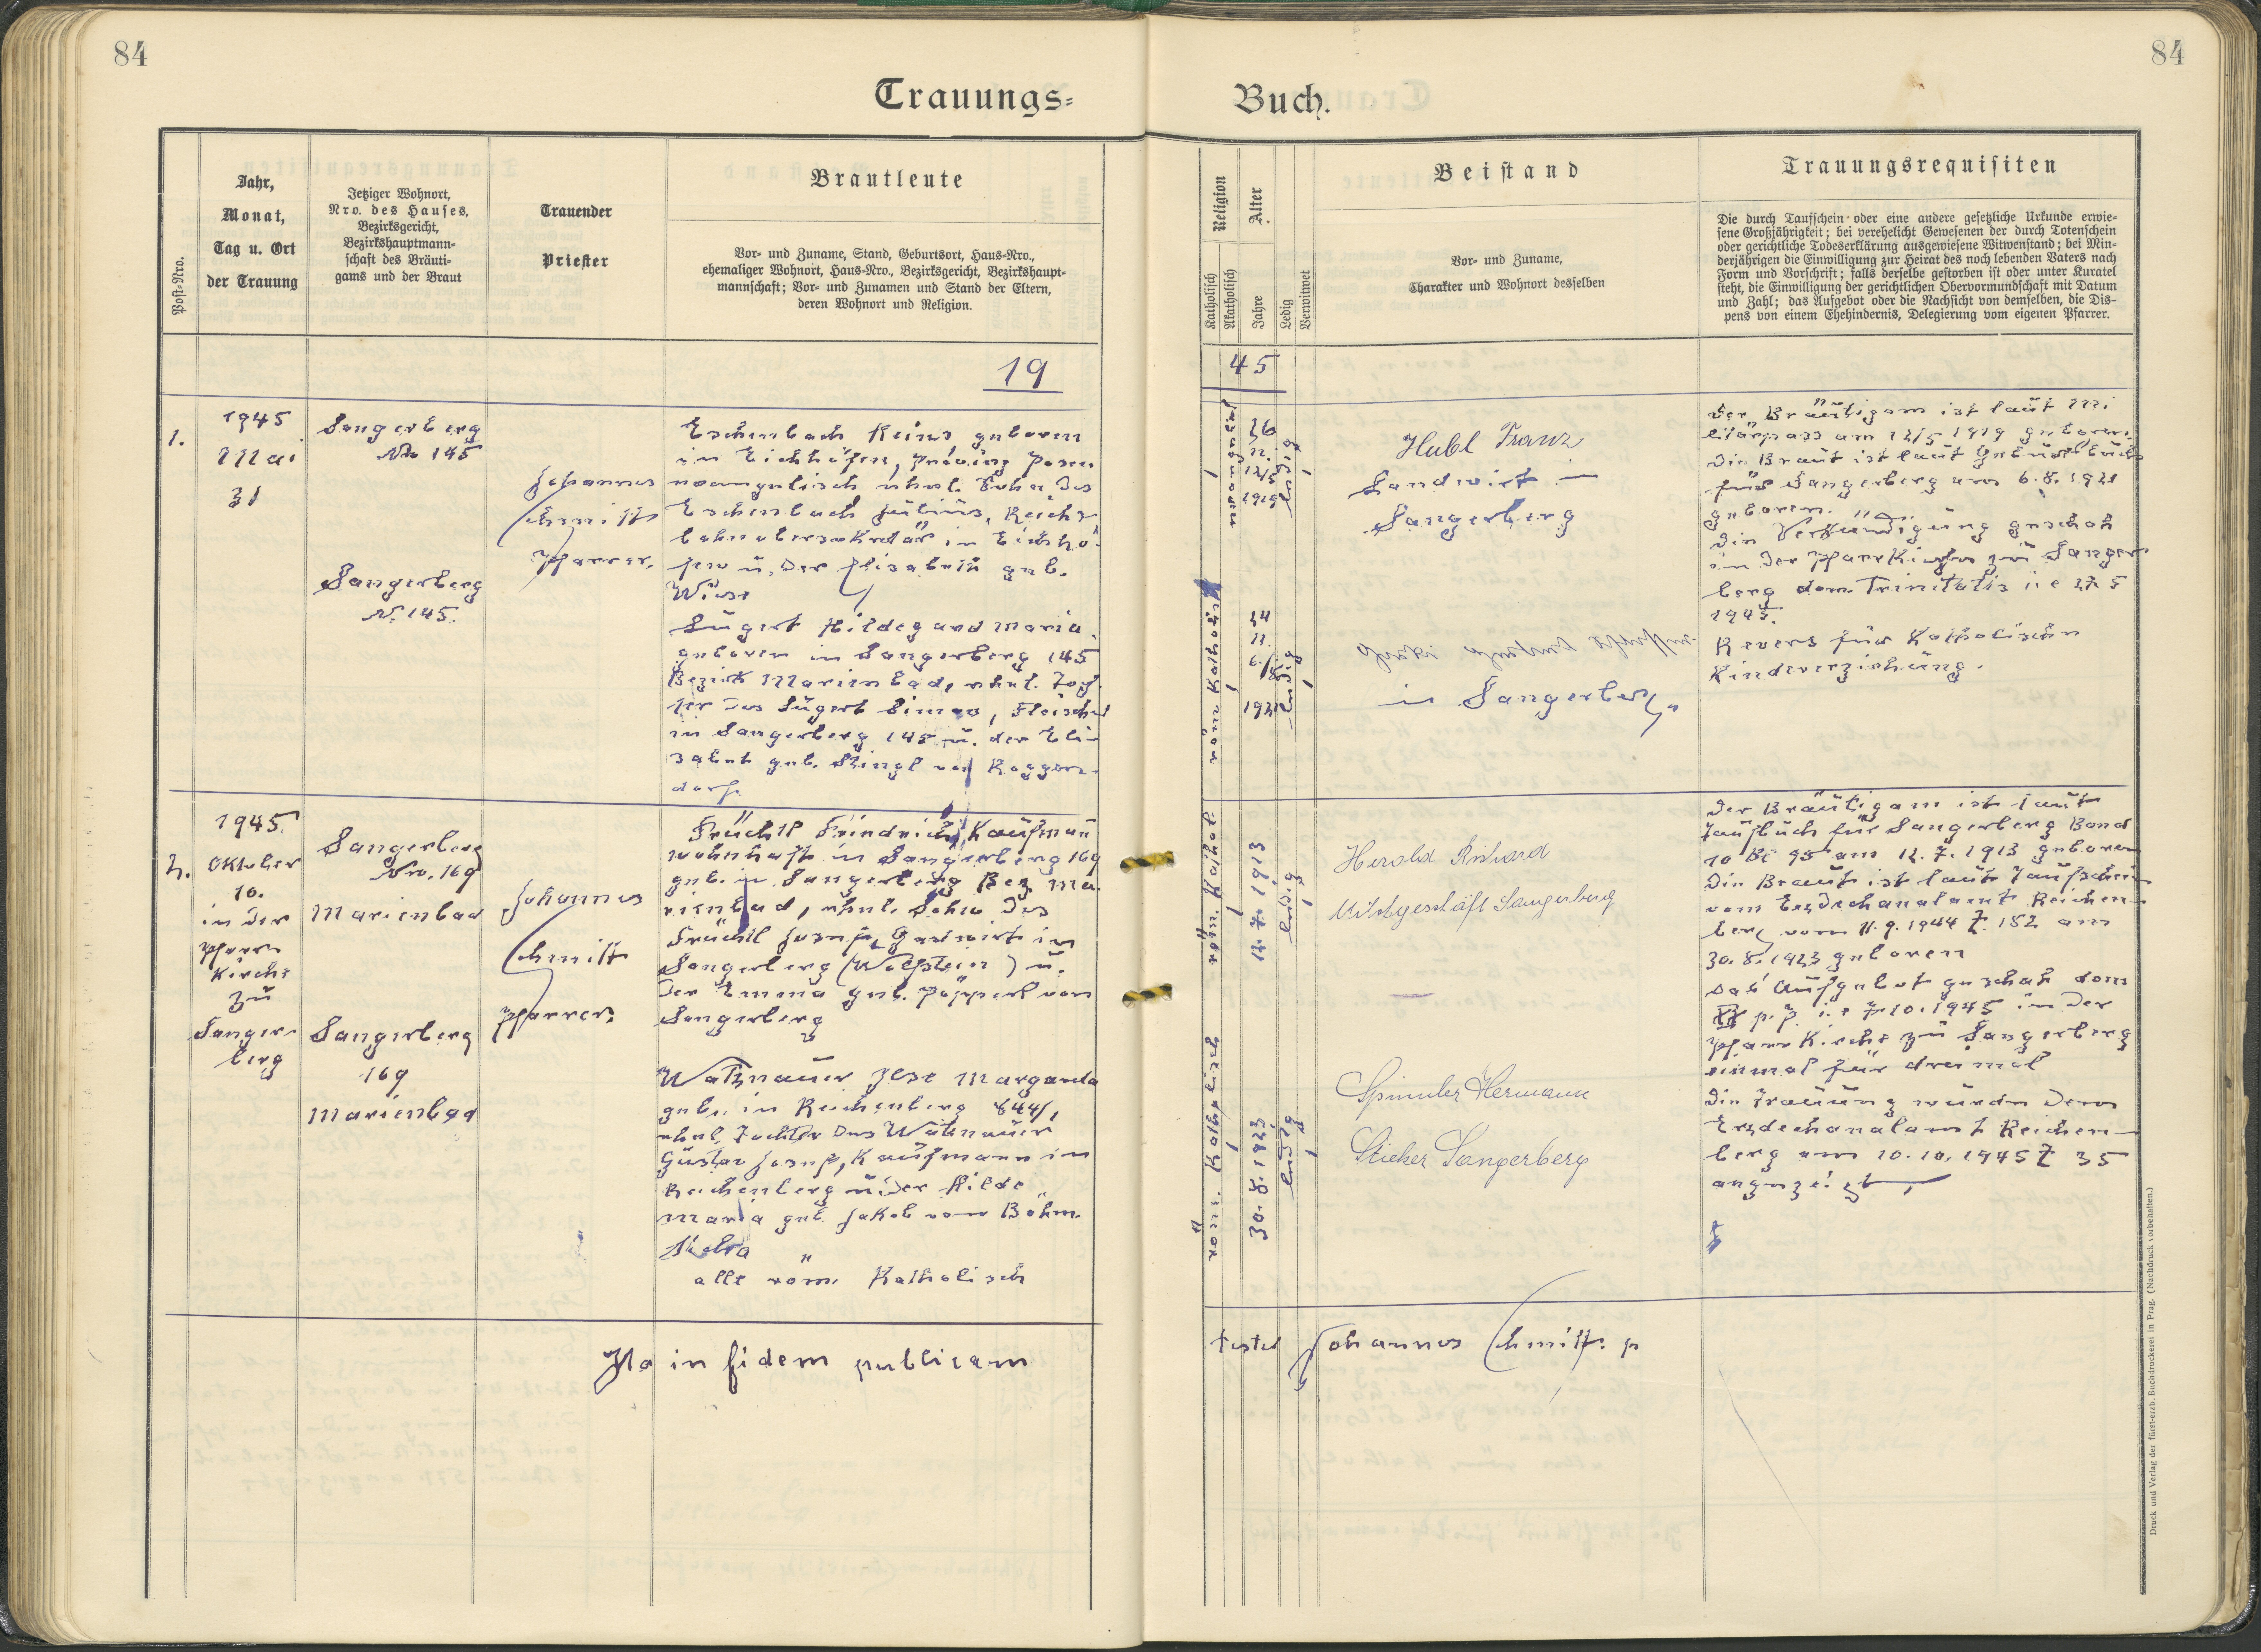 84
84
Trauungs-
Buch.
Post-Nro.
Jahr,
Monat,
Tag u. Ort
der Trauung
Jetziger Wohnort,
Nro. des Hauses,
Bezirksgericht,
Bezirkshauptmann-
schaft des Bräuti-
gams und der Braut
Trauender
Priester
Brautleute
Vor- und Zuname, Stand, Geburtsort, Haus-Nro.,
ehemaliger Wohnort, Haus-Nro., Bezirksgericht, Bezirkshaupt-
mannschaft; Vor- und Zunamen und Stand der Eltern,
deren Wohnort und Religion.
Religion
Katholisch
Akatholisch
Alter
Jahre
Ledig
Verwitwet
Beistand
Vor- und Zuname,
Charakter und Wohnort desselben
Trauungsrequisiten
Die durch Taufschein oder eine andere gesetzliche Urkunde erwie-
sene Großjährigkeit; bei verehelicht Gewesenen der durch Totenschein
oder gerichtliche Todeserklärung ausgewiesene Witwenstand; bei Min-
derjährigen die Einwilligung zur Heirat des noch lebenden Vaters nach
Form und Vorschrift; falls derselbe gestorben ist oder unter Kuratel
steht, die Einwilligung der gerichtlichen Obervormundschaft mit Datum
und Zahl; das Aufgebot oder die Nachsicht von demselben, die Dis-
pens von einem Ehehindernis, Delegierung vom eigenen Pfarrer.
19
45
1.
1945
Mai
31
Sangerberg
No 145
Sangerberg
N. 145.
Johannes
Schmitt
Pfarrer.
Eschenbach Heinz, geboren
in Eichhöfen, Provinz Posen
evangelisch ehel. Sohn des
Eschenbach Julius, Reichs
bahnobersekretär in Eichhö-
fen u. der Elisabeth geb.
Wiese
Lugert Hildegard Maria
geboren in Sangerberg 145
Bezirk Marienbad, ehel. Toch-
ter des Lugert Simon, Fleischer
in Sangerberg 145 u. der Eli-
sabet geb. Stingl von Roggen-
dorf.
evangelisch
1
26
n.
12/5
1919
ledig
1
röm katholisch
1
24
n.
6./8
1921
ledig
1
Hubl Franz
Landwirt in
Sangerberg
in Sangerberg
Der Bräutigam ist laut Mi
litärpass am 12/5 1919 geboren.
Die Braut ist laut Geburtsbuch
für Sangerberg am 6.8. 1921
geboren.
Die Verkündigung geschah
in der Pfarrkirche zu Sanger
berg dom. Trinitatis i e 27. 5
1945.
Revers für Katholischen
Kindererziehung.
2.
1945.
Oktober
10.
in der
Pfarr-
kirche
zu
Sanger-
berg
Sangerberg
Nro. 169
Marienbad
Sangerberg
169
Marienbad
Johannes
Schmitt
Pfarrer.
Früchtl Friedrich, Kaufmann
wohnhaft in Sangerberg 169
geb. in Sangerberg Bez. Ma-
rienbad, ehel. Sohn des
Früchtl Josef, Gastwirt in
Sangerberg (Wolfstein) u.
der Emma geb. Pöpperl von
Sangerberg
Watznauer Ilse Margareta
geb. in Reichenberg 844/1
ehel. Tochter des Watznauer
Gustav Josef, Kaufmann in
Reichenberg u. der Hilde
Maria geb. Jakob von Böhm.
Aicha
alle röm. Katholisch
röm. Kathol.
1
12. 7. 1913
ledig
1
röm. Katholisch
1
30. 8. 1923
ledig
1
Herold Richard
Milchgeschäft Sangerberg
Spinnler Hermann
Sticker Sangerberg
Der Bräutigam ist laut
Taufbuch für Sangerberg Band
10 Bl 95 am 12. 7. 1913 geboren
Die Braut ist laut Taufschein
vom Erzdechanalamt Reichen-
berg vom 11. 9. 1944 Z. 152 am
30. 8. 1923 geboren
Das Aufgebot geschah dom
XX p. p. i. e 7. 10. 1945 in der
Pfarrkirche zu Sangerberg
einmal für dreimal
Die Trauung wurde dem
Erzdechanalamt Reichen-
berg am 10. 10. 1945 Z 35
angezeigt
Ita in fidem publicam
testor Johannes Schmitt. p
Druck und Verlag der fürst-erzb. Buchdruckerei in Prag. (Nachdruck vorbehalten.)